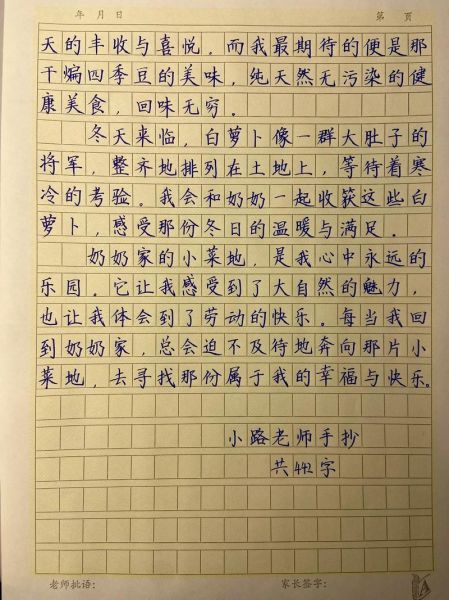 年 月 日 第 页
天的丰收与喜悦。而我最期待的便是那
干煸四季豆的美味，纯天然无污染的健
康美食，回味无穷。
冬天来临，白萝卜像一群大肚子的
将军，整齐地排列在土地上，等待着寒
冷的考验。我会和奶奶一起收获这些白
萝卜，感受那份冬日的温暖与满足。
奶奶家的小菜地，是我心中永远的
乐园。它让我感受到了大自然的魅力，
也让我体会到了劳动的快乐。每当我回
到奶奶家，总会迫不及待地奔向那片小
菜地，去寻找那份属于我的幸福与快乐。
小路老师手抄
共442字
老师批语： 家长签字：